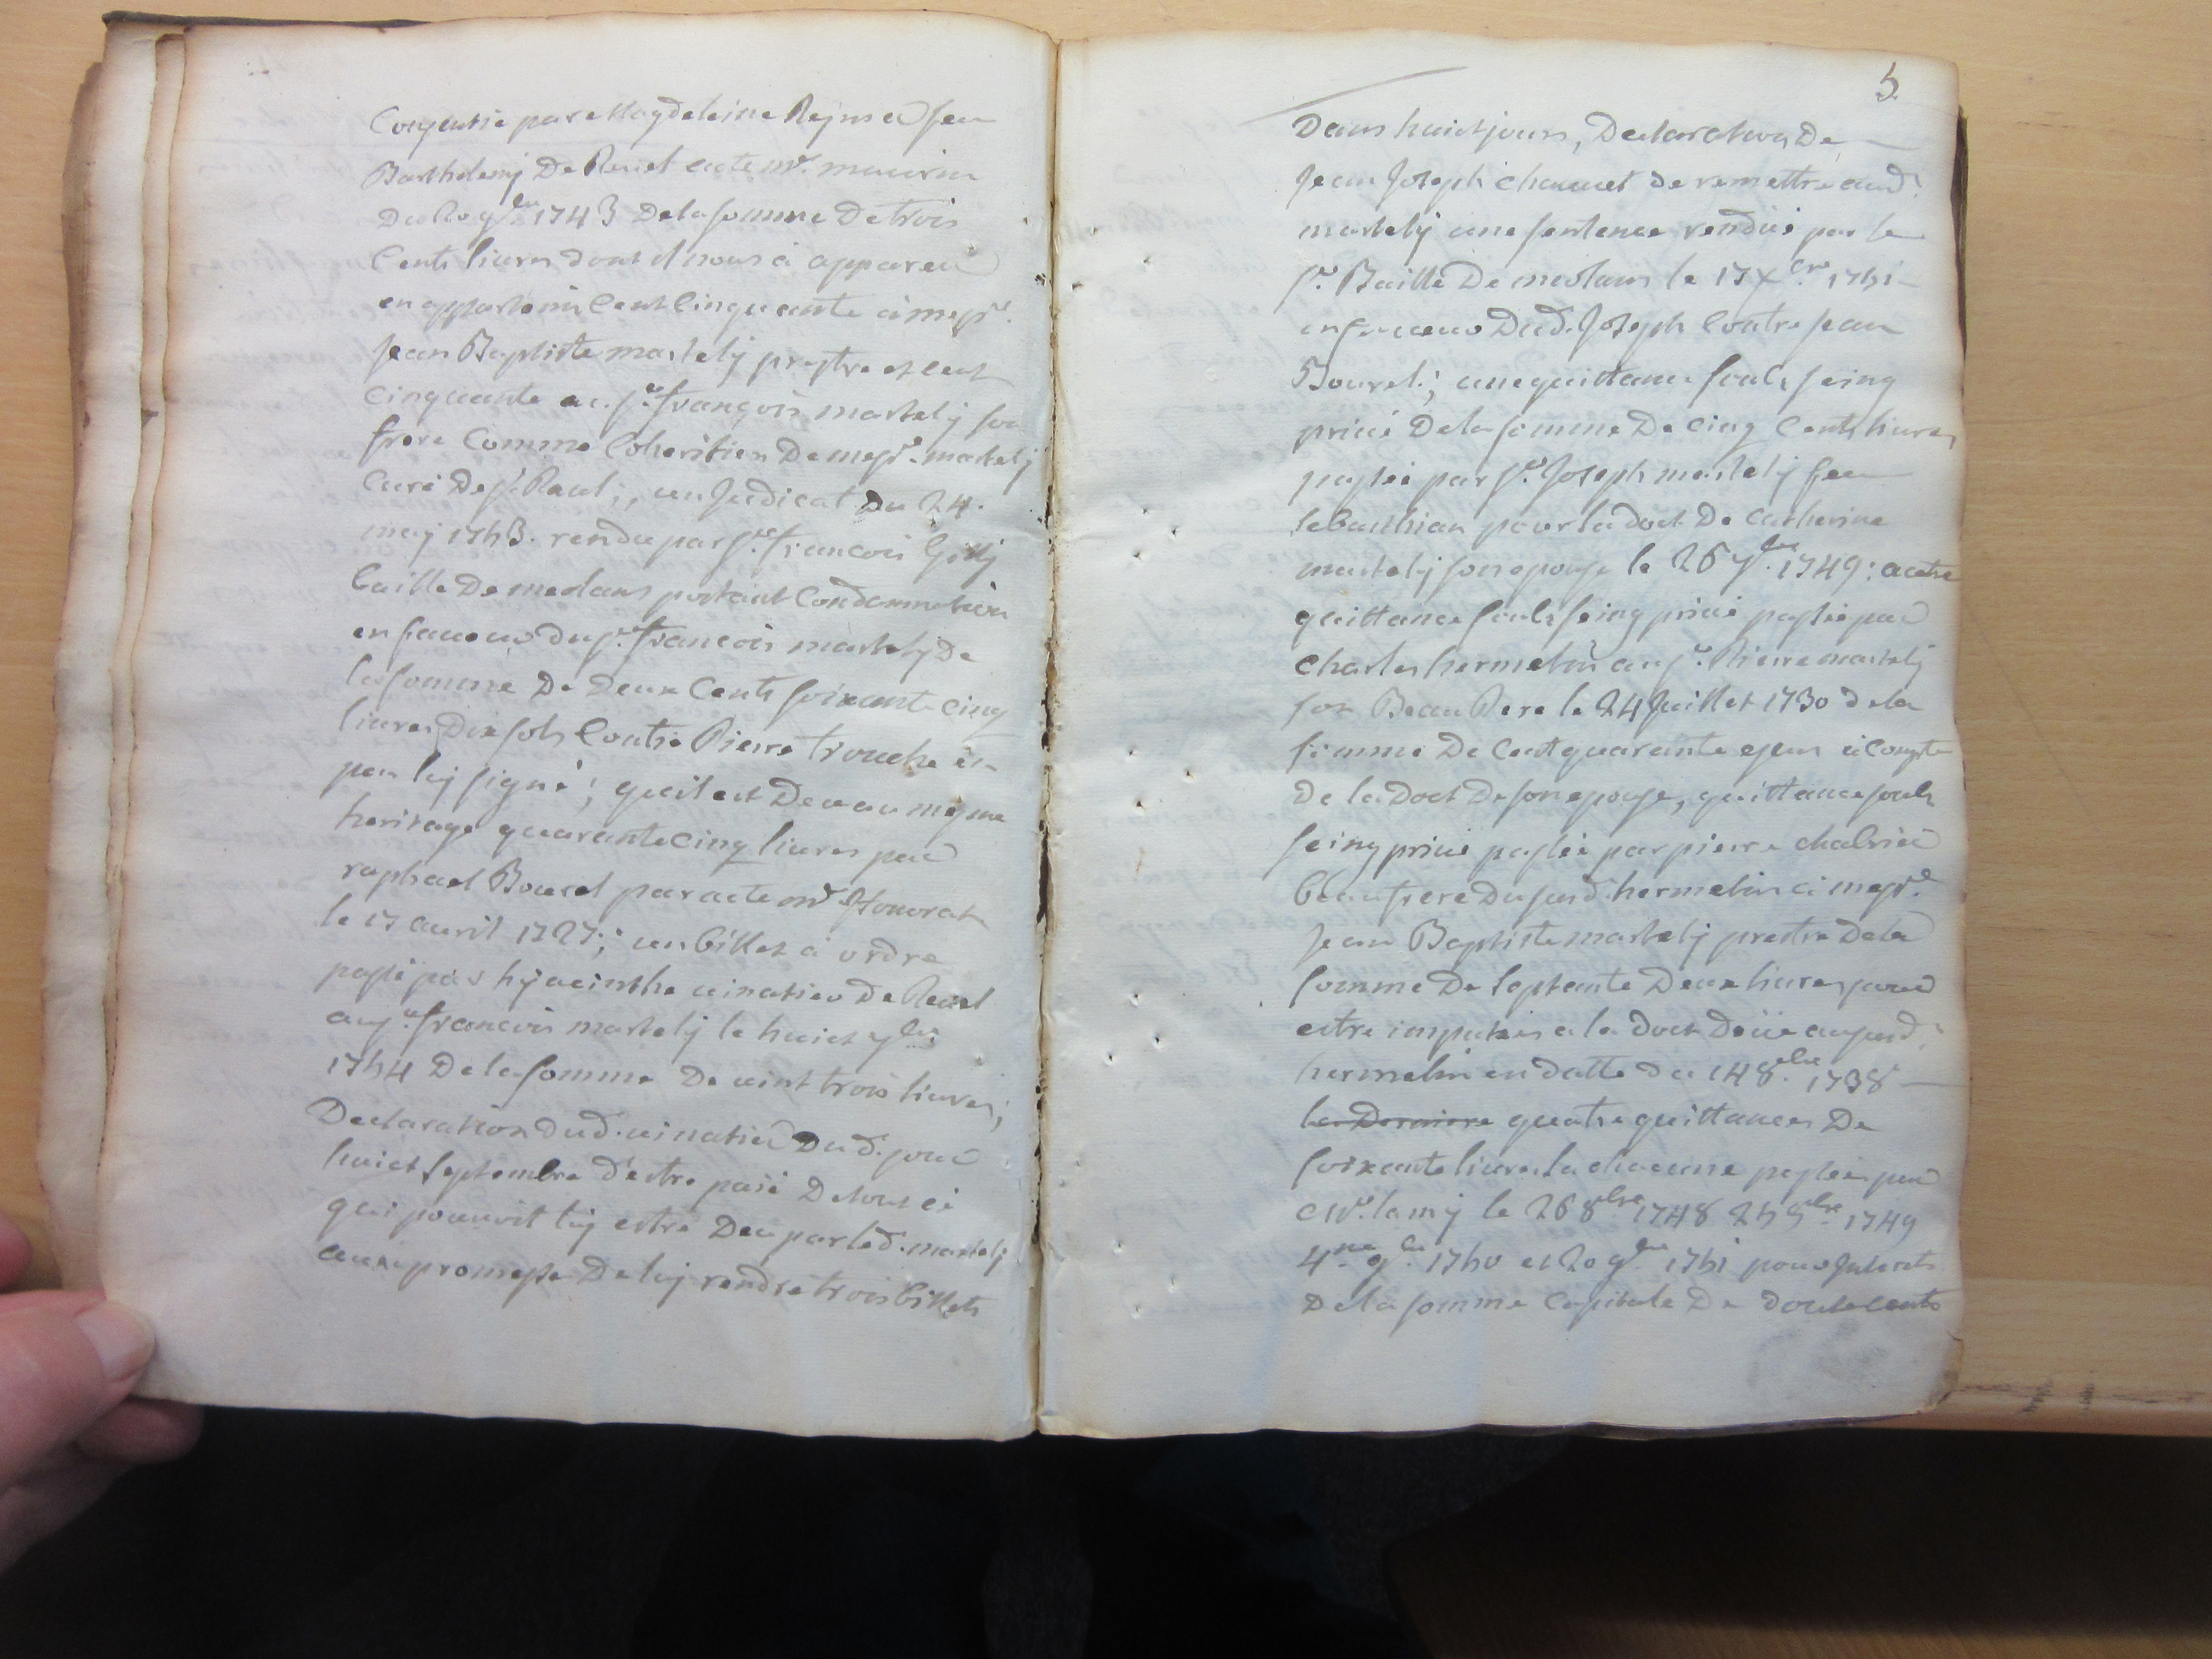 Consentie par Magdeleine Reynier feu
Barthelemy De Revel acte m.e maurin
Du 20 9bre 1743 De la somme De trois
Cents livres dont il nous à appareu
en appartenir Cent Cinquante à mess.re
Jean Baptiste martelly prestre et cent
Cinquante au s.r françois martelly son
frere Comme Coheritier De mess.re martelly
Curé De s.t Paul; un Judicat Du 24.
may 1753. rendu par s.r françois Gilly
baille De meolans portant Condamnation
en faveur du s.r francois martelly De
la somme De Deux Cents soixante cinq
livres Dix sols Contre Pierre trouche
par luy signé; qu'il est Deu au mesme
heritage quarante cinq livres par
raphael Bourel par acte m.e Honorat
le 17 avril 1727; un billet à ordre
passé par hyacinthe vinatier De Revel
au s.r francois martelly le huict 7bre
1754 De la somme De vint trois livres;
Declaration dud. vinatier Dud. jour
huict septembre d'estre païé De tout ce
qui pouvoit luy estre Deu par led. martelly
avec promesse De luy rendre trois billets
5
Dans huict jours, Declaration De
Jean Joseph chauvet De remettre aud.
martelly une sentence rendüe par le
s.r Baille De meolans le 17 X.bre 1751
en faveur Dud. Joseph Contre Jean
Bourel; une quittance soubs seing
privé De la somme De cinq Cents livres
passée par s.r Joseph martelly feu
sebasthian pour la doct De catherine
martelly son epouse le 26 7bre 1749: autre
quittance soubs seing privé passée par
charles hermelin au s.r Pierre martelly
son Beau Pere le 24 Juillet 1730 de la
somme De Cent quarante escus à Compte
De la Doct De son epouse, quittance soubs
seing privé passée par pierre chabrier
beaufrere Du susd. hermelin à mess.re
Jean Baptiste martelly prestre De la
somme De septante Deux livres pour
estre imputées a la doct Deüe au susd.
hermelin en datte du 14 8.bre 1738
la Derniere quatre quittances De
soixante livres la chacune passées par
M.e lamy le 26 8bre 1748 25 8bre 1749
4.me 9bre 1750 et 20 9bre 1751 pour Interets
De la somme Capitale De douze cents